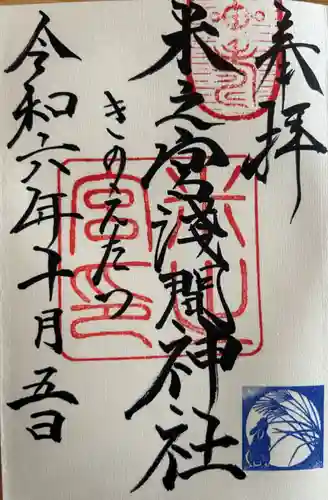 奉拝
米之宮浅間神社
きのえたつ
令和六年十月五日
米之宮印